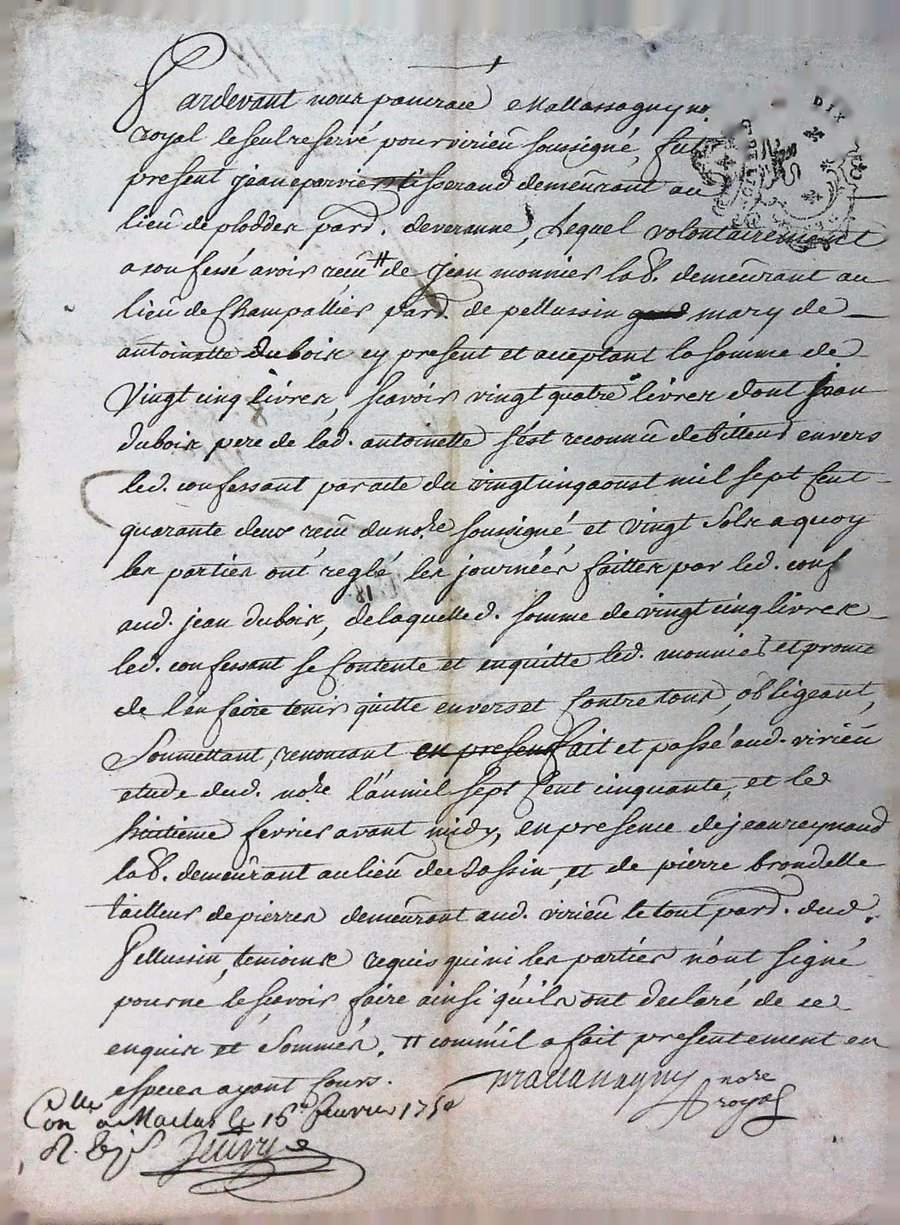 Pardevant nous pancrace Mallassagny no.re
royal le seul reservé pour virieu soussigné, fut
present jean parvier tisserand demeurant au
lieu de plodder par.d. de veranne, Lequel volontairement
a confessé avoir receu # de jean monnier lab.r demeurant au
lieu de Champallier par.d. de pellussin mary de
antoinette duboix cy present et acceptant la somme de
Vingt cinq livres, scavoir vingt quatre livres dont jean
duboix pere de lad. antoinette s'est reconnu debitteur envers
led. confessant par acte du vingt cinq aoust mil sept cent
quarante deux receu du no.re soussigné et vingt sols a quoy
les parties ont reglé les journées faittes par led. conf
aud. jean duboix, de laquelle d. somme de vingt cinq livres
led. confessant se contente et en quitte led. monnier et promet
de l'en faire tenir quitte envers et contre tous, obligeant,
soumettant, renoncant en present fait et passé aud. virieu
etude dud. no.re l'an mil sept cent cinquante, et le
huitieme fevrier avant midy, en presence de jean reynaud
lab.r demeurant au lieu de sassin, et de pierre brondelle
tailleur de pierres demeurant aud. virieu le tout par.d. dud.
Pellussin, temoins requis qui ni les parties n'ont signé
pour ne le scavoir faire ainsi qu'ils ont declaré de ce
enquis et sommés. # comm'il a fait presentement en
especes ayant cours.
Mallassagny no.re
royal
DIX
Con.llé a Maclas le 16.e fevrier 1750
R.